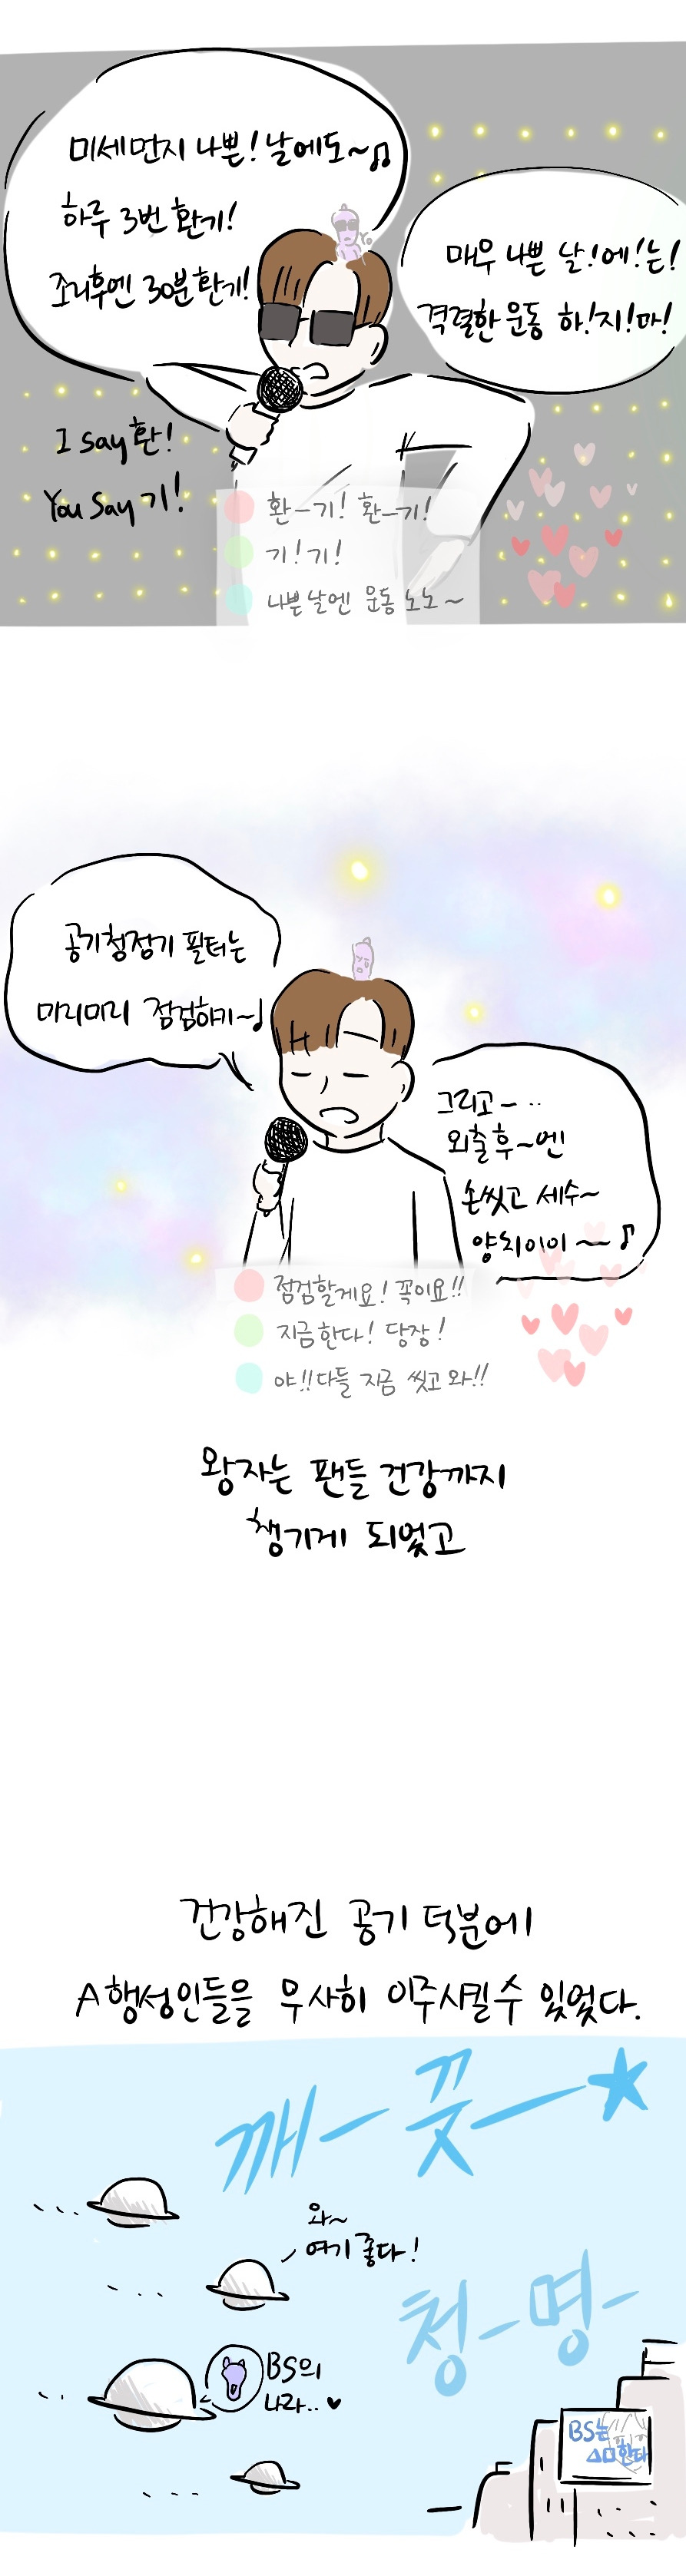 미세먼지 나쁜! 날에도~♫
하루 3번 환기!
조리후엔 30분 환기!
Yo
매우 나쁜 날!에!는!
격렬한 운동 하!지!마!
I say 환!
You say 기!
환-기! 환-기!
기!기!
나쁜날엔 운동 노노~
공기청정기 필터는
미리미리 점검하기~♩
그리고~..
외출후~엔
손씻고 세수~
양치이이~~♪
점검할게요! 꼭이요!!
지금한다! 당장!
야!!다들 지금 씻고 와!!
왕자는 팬들 건강까지
챙기게 되었고
건강해진 공기 덕분에
A행성인들을 무사히 이주시킬수 있었다.
깨-끗-★
와~
여기 좋다!
청-명-
BS의
나라..♥
BS는
△□한다